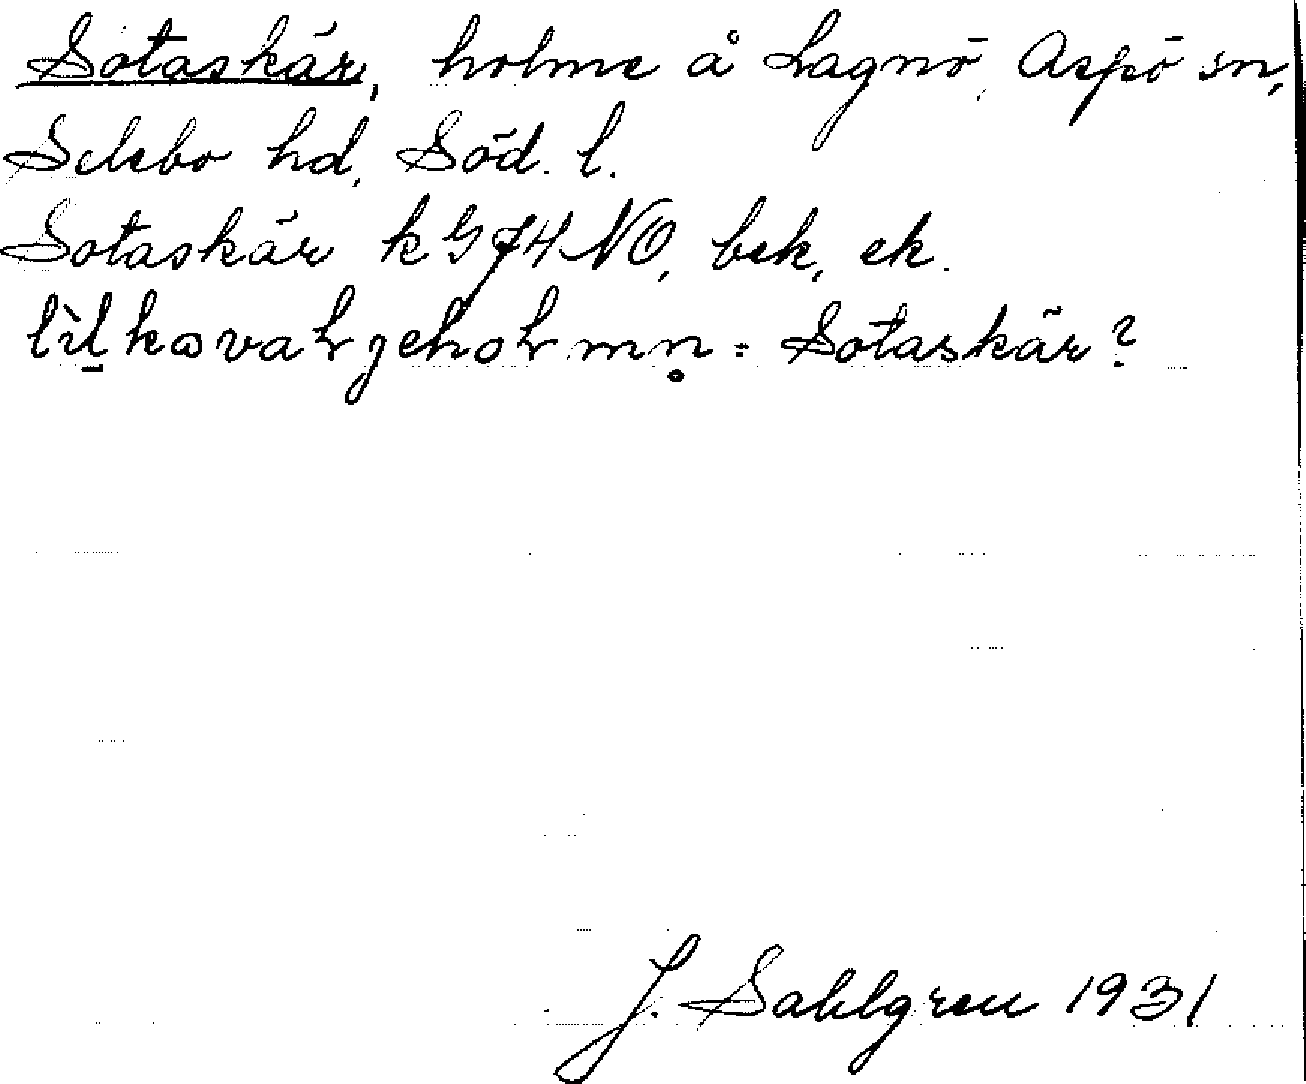 Sotaskär, holme å Lagnö, Aspö sn,
Selebo hd, Söd. l.
Sotaskär k G 74 NO, bek, ek.
= Sotaskär?
J. Sahlgren 1931